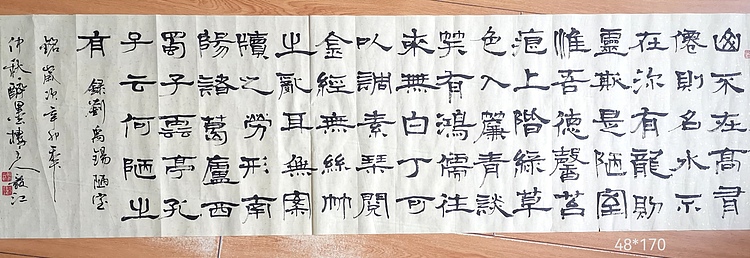 山不在高有
僊則名水不
在深有龍則
靈斯是陋室
惟吾德馨苔
痕上階綠草
色入簾青談
笑有鴻儒往
來無白丁可
以調素琴閱
金經無絲竹
之亂耳無案
牘之勞形南
陽諸葛廬西
蜀子雲亭孔
子云何陋之
有
錄劉禹錫陋室
銘歲次辛卯年
仲秋醉墨樓主人江
48*170